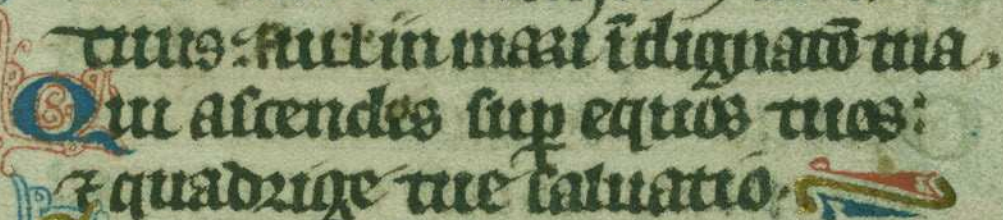 tuus: aut in mari īdignatō tua.
Qui ascendis suꝑ equos tuos:
⁊ quadrige tue saluatio.